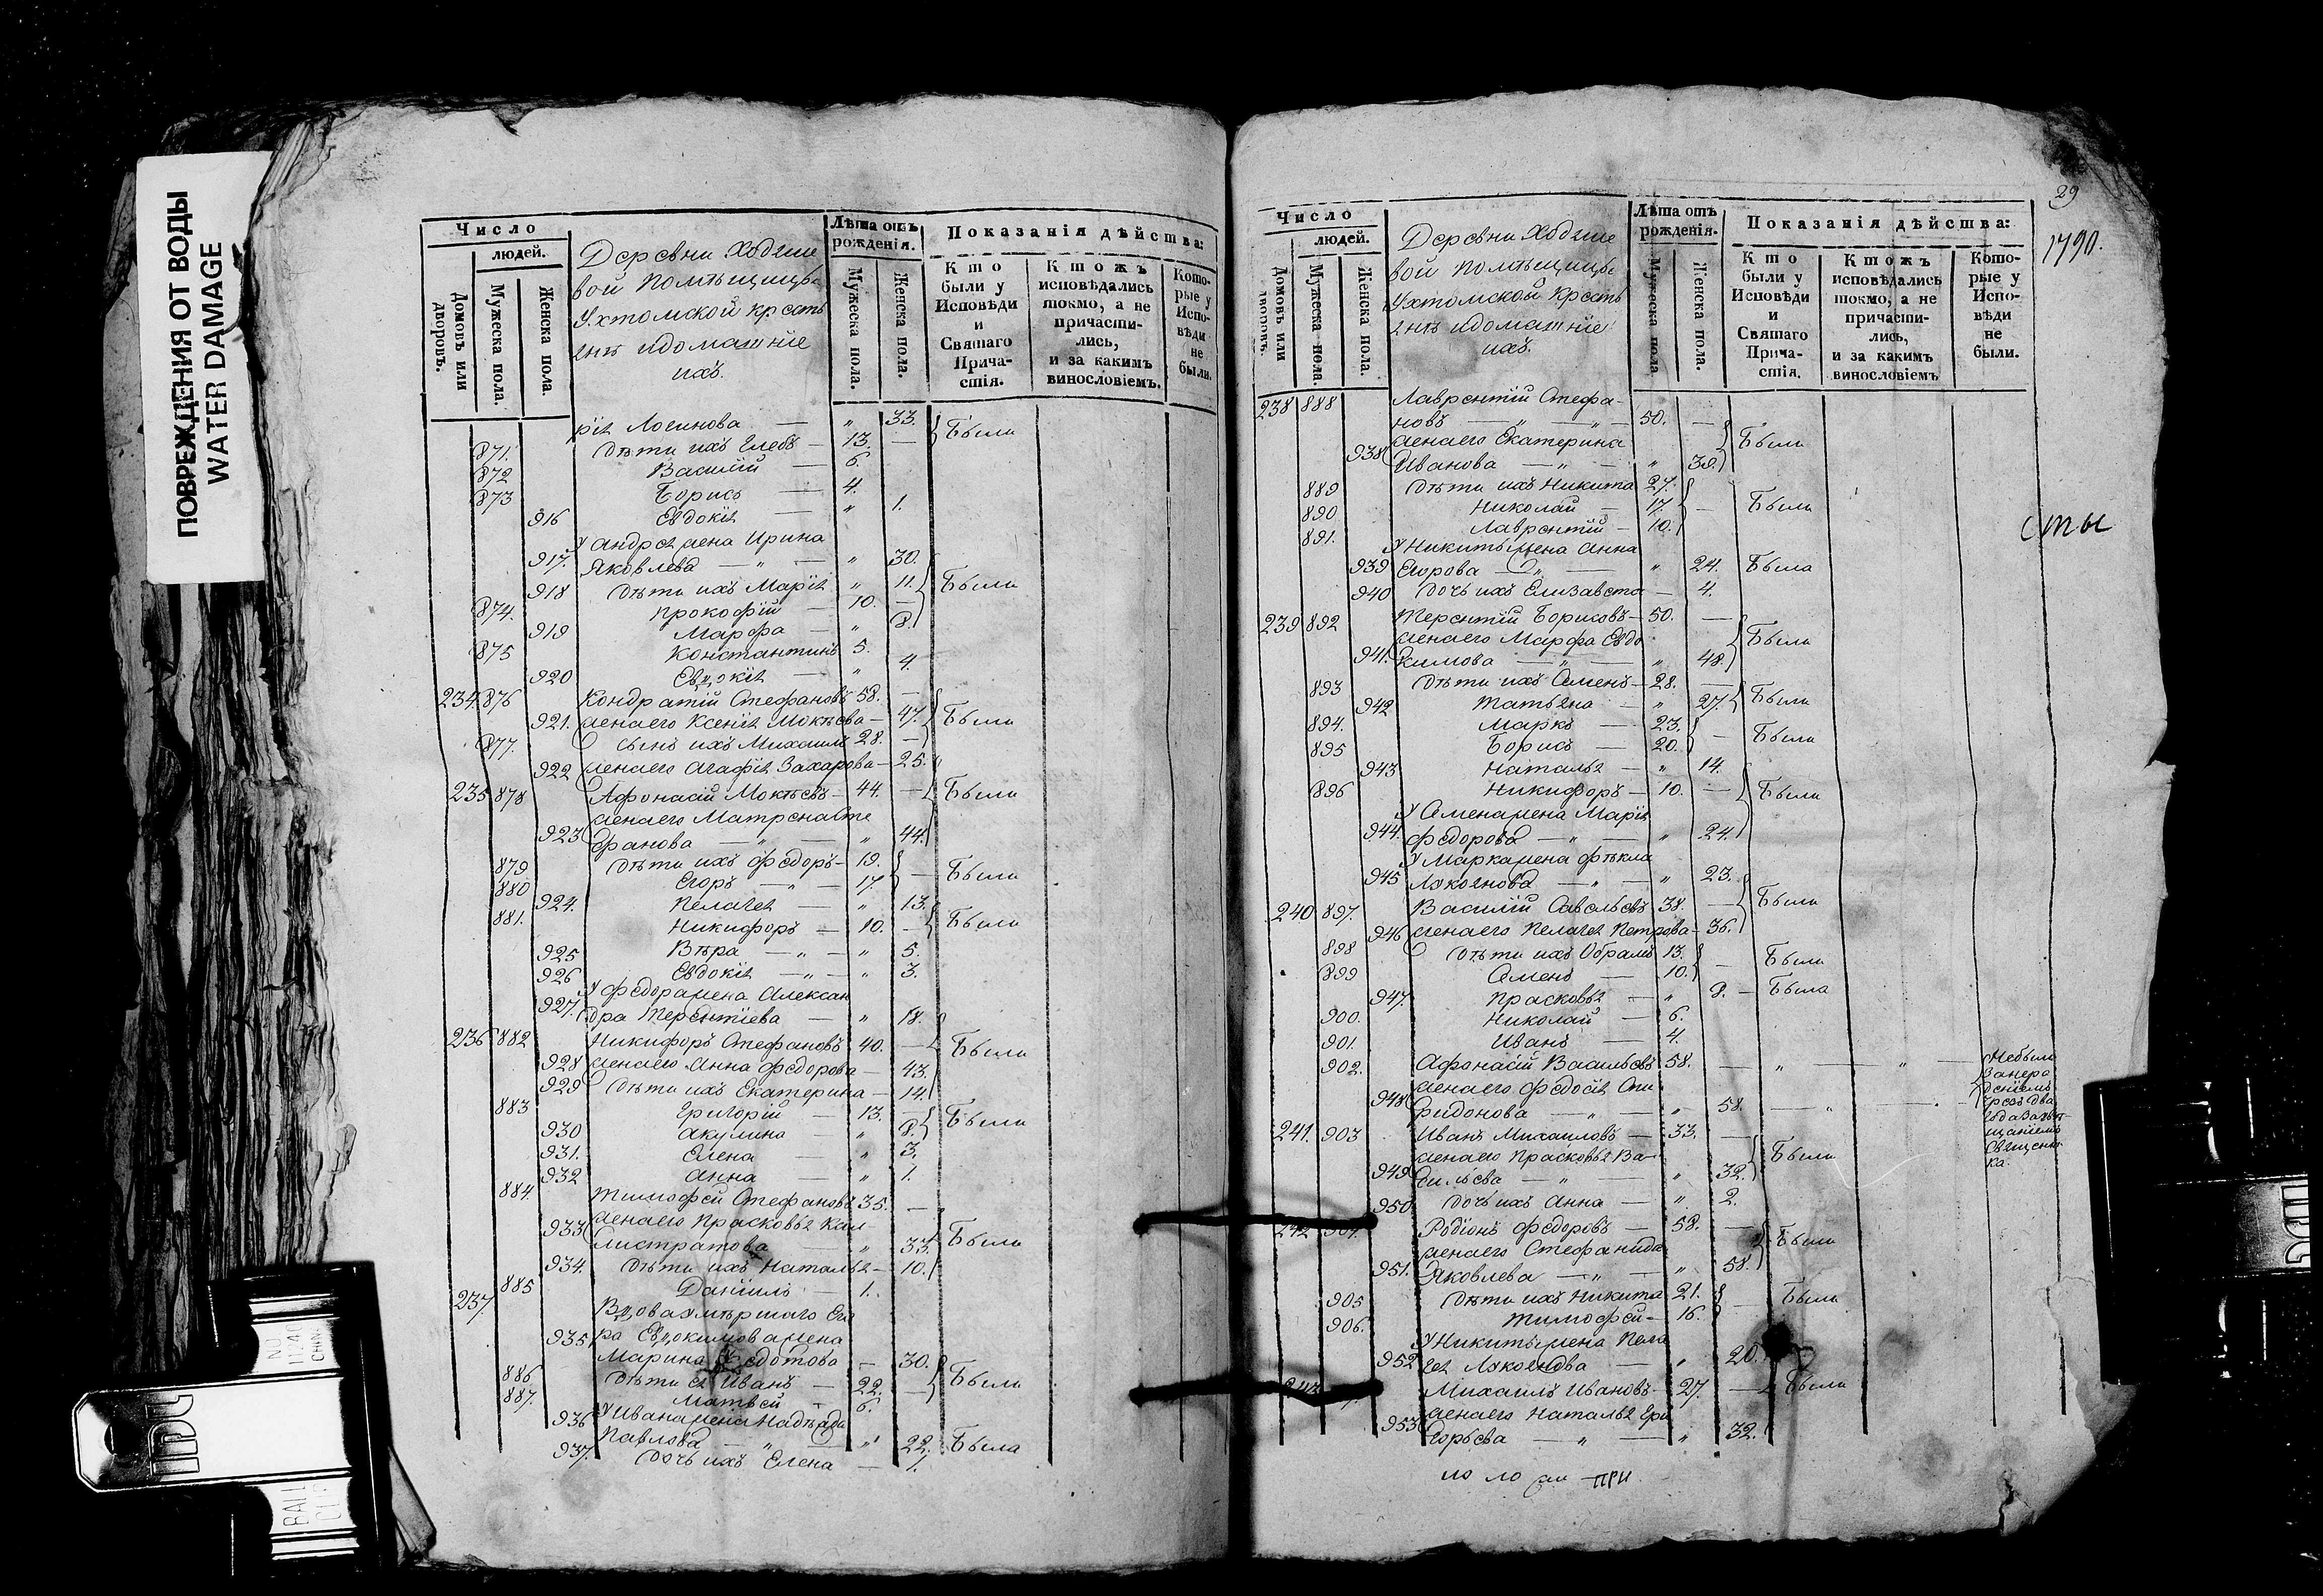 ПОВРЕЖДЕНИЯ ОТ ВОДЫ
WATER DAMAGE
Число
людей.
Домовъ или дворовъ.
Мужеска пола.
Женска пола.
Деревни Ходяие
вой помѣщицы
Ухтомской кресть
янѣ идомашніе
ихъ.
Лѣта отъ рожденія.
Мужеска пола.
Женска пола.
Показанія дѣйства:
Кто были у Исповѣди и Святаго Прича-
стія.
Ктожъ исповѣдались токмо, а не причасти-
лись, и за какимъ винословіемъ.
Кото-
рые у Испо-
вѣди не были.
рія Логинова — „ 33. Были
871. дѣти ихъ Глебъ — 13. —
872 Василій — 6.
873 Борисъ — 4.
916 Евдокія — „ 1.
У андрея жена Ирина
917. Яковлева — „ — „ 30.
918 дѣти ихъ Марія „ 11. Были
874. Прокофій — 10. —
919 Марфа — „ 8.
875 Константинъ 5.
920 Евдокія — „ 4.
234. 876 Кондратій Стефановъ 58. —
921. жена его Ксенія Мокѣева — 47. Были
877. сынъ ихъ Михаилъ 28. —
922 жена его Агафія Захарова — 25.
235 878 Афонасій Мокѣевъ — 44. — Были
жена его Матрена Сте
923 фанова — „ — „ 44.
879 дѣти ихъ Федоръ — 19.
880 Егоръ — „ — 17. — Были
924. Пелагея — „ 13.
881. Никифоръ — 10. — Были
925 Вѣра — „ — „ 5.
926 Евдокія — „ — „ 3.
У федора жена Алексан
927. дра Терентіева — „ 18.
236 882 Никифоръ Стефановъ 40. — Были
928 жена его Анна Федорова — 43.
929 дѣти ихъ Екатерина — 14.
883 Григорій — 13. — Были
930 Акулина — „ 8.
931. Елена — „ 3.
932 Анна — „ 1.
884. Тимофей Стефановъ 35. —
жена его Прасковья Кал-
933 листратова — „ 33. Были
934. дѣти ихъ Наталья — 10.
885 Даніилъ — 1.
237. Вдова умѣршаго Его
935 ра Евдокимова жена
Марина Федотова — 30.
886 дѣти ея Иванъ — 22. — Были
887. Матвей — 6.
936 У Ивана жена Надѣжда
Павлова — „ — „ 22. Была
937. дочь ихъ Елена — 1.
29
1790.
Число
людей.
Домовъ или дворовъ.
Мужеска пола.
Женска пола.
Деревни Ходяие
вой помѣщицы
Ухтомской кресть
янѣ идомашніе
ихъ.
Лѣта отъ рожденія.
Мужеска пола
Женска пола.
Показанія дѣйства:
Кто были у Исповѣди и Святаго Прича-
стія.
Ктожъ исповѣдались токмо, а не причасти-
лись, и за какимъ винословіемъ
Кото-
рые у Испо-
вѣди не были.
238 888 Лаврентій Стефа-
новъ — „ — „ — 50. —
жена его Екатерина Были
938 Иванова — „ — „ 39.
889 дѣти ихъ Никита 27.
890 Николай — 17. — Были
891. Лаврентій — 10.
сты
У Никиты жена Анна
939 Егорова — „ — „ 24. Была
940 дочь ихъ Елизавета — 4.
239 892 Терентій Борисовъ — 50. —
жена его Марфа Евдо Были
941. кимова — „ — „ 48.
893 дѣти ихъ Семенъ — 28. —
942 Татьяна — „ 27. Были
894. Маркъ — 23.
895 Борисъ — 20. — Были
943 Наталья — „ 14.
896 Никифоръ — 10. — Были
У Семена жена Марія
944. Федорова — „ — „ 24.
У Марка жена Фѣкла
945 Лукоянова — „ — „ 23.
240 897. Василій Савельевъ 38. — Были
946 жена его Пелагея Петрова — 36.
898 дѣти ихъ Обрамъ 13.
899 Семенъ — 10. — Были
947. Прасковья — „ 8. — Была
900. Николай — 6.
901. Иванъ — 4.
902. Афонасій Васильевъ 58. — „ — „ — Небыли
жена его Федосія Спи
948 ридонова — „ — „ 58. — „ —
за нера
деніемъ
чрезъ два
года
Священи
ка.
241. 903 Иванъ Михаиловъ — 33. —
жена его Прасковья Ва- Были
949 сильева — „ — „ 32.
950 дочь ихъ Анна — „ 2.
242 904. Родіонъ Федоровъ — 58. —
жена его Стефанида Были
951. Яковлева — „ — „ 58.
905 дѣти ихъ Никита 21. — Были
906. Тимофей — 16.
У Никиты жена Пела
952 гея Лукоянова — „ 20.
243 Михаилъ Ивановъ — 27. — Были
жена его Наталья Гри
953 горьева — „ — „ 32.